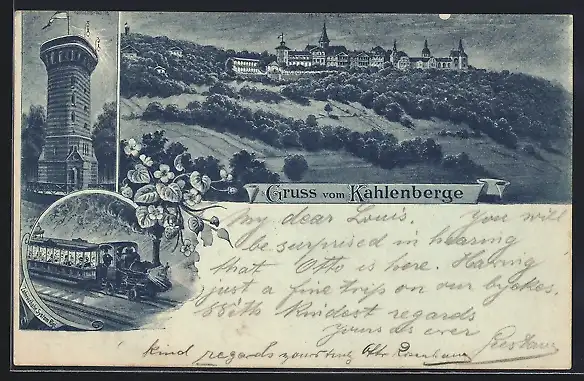 Gruss vom Kahlenberge
My dear Louis. You will
be surprised in hearing
that Otto is here. Having
just a fine trip on our bykes.
With kindest regards
yours as ever
kind regards yours truly Otto